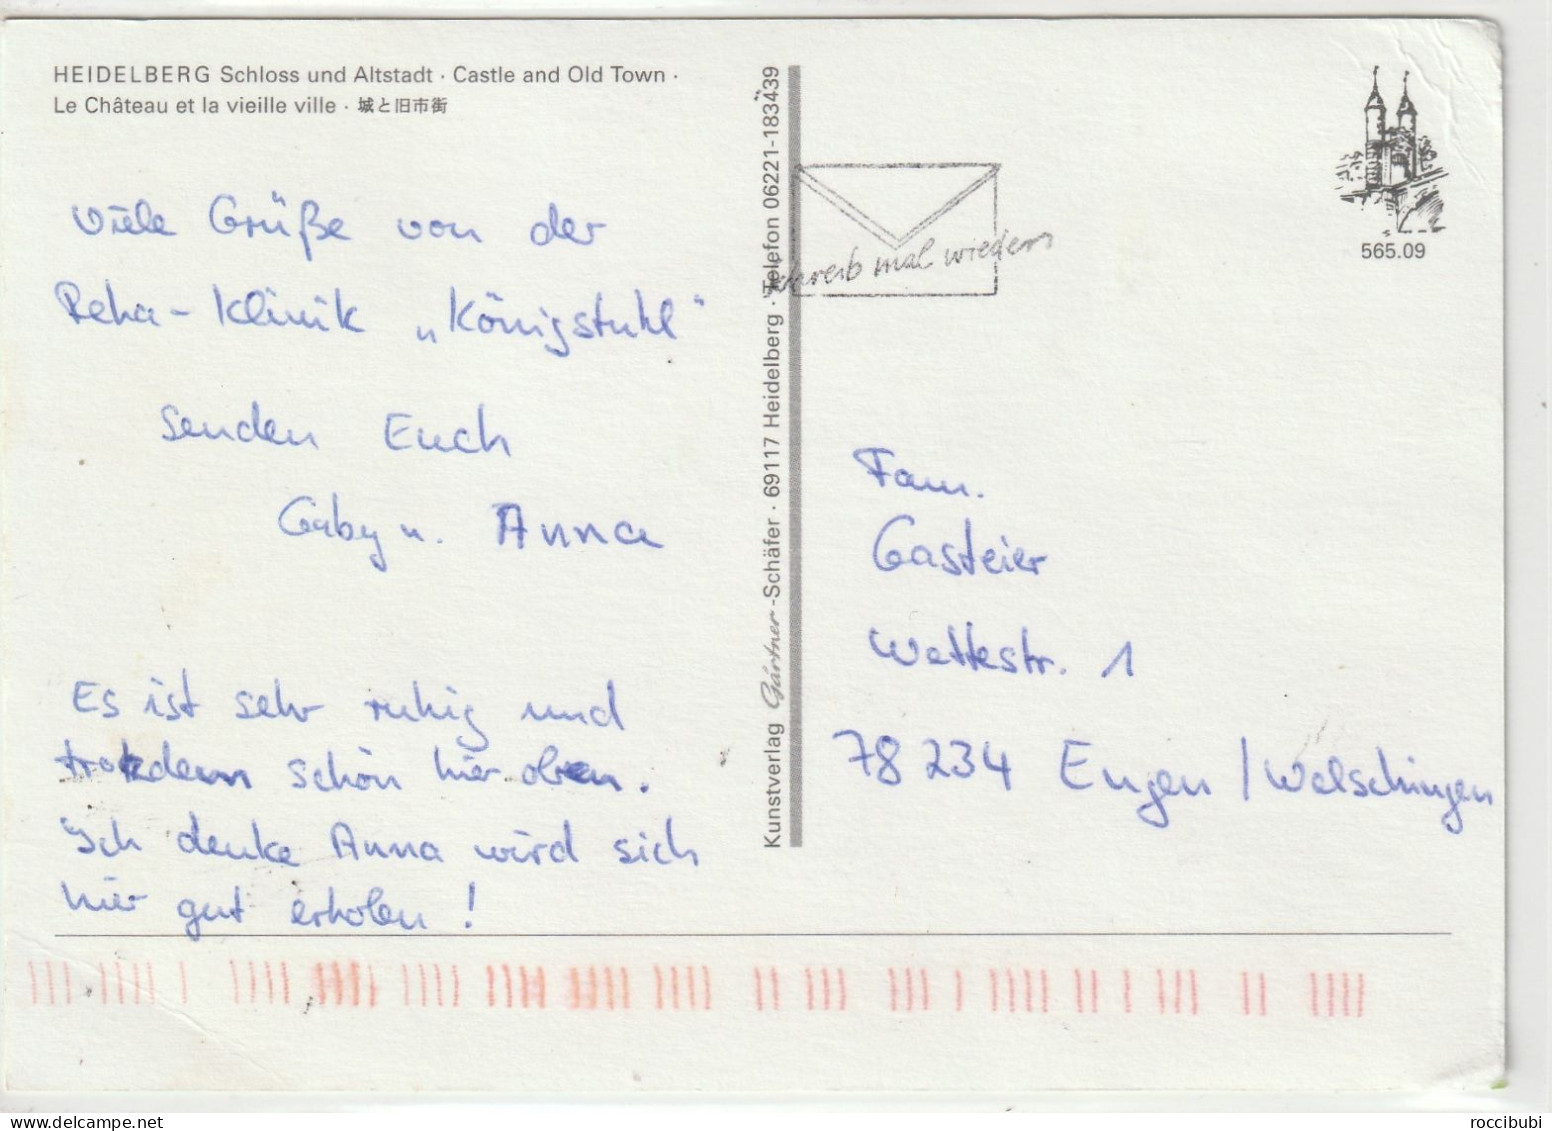 HEIDELBERG Schloss und Altstadt · Castle and Old Town ·
Le Château et la vieille ville · 城と旧市街
Viele Grüße von der
Reha-Klinik „Königstuhl"
senden Euch
Gaby u. Anna
Es ist sehr ruhig und
trotzdem schön hier oben.
Ich denke Anna wird sich
hier gut erholen!
Kunstverlag Gärtner-Schäfer · 69117 Heidelberg · Telefon 06221-183439
schreib mal wieder
565.09
Fam.
Gasteier
Wettestr. 1
78234 Engen / Welschingen
roccibubi